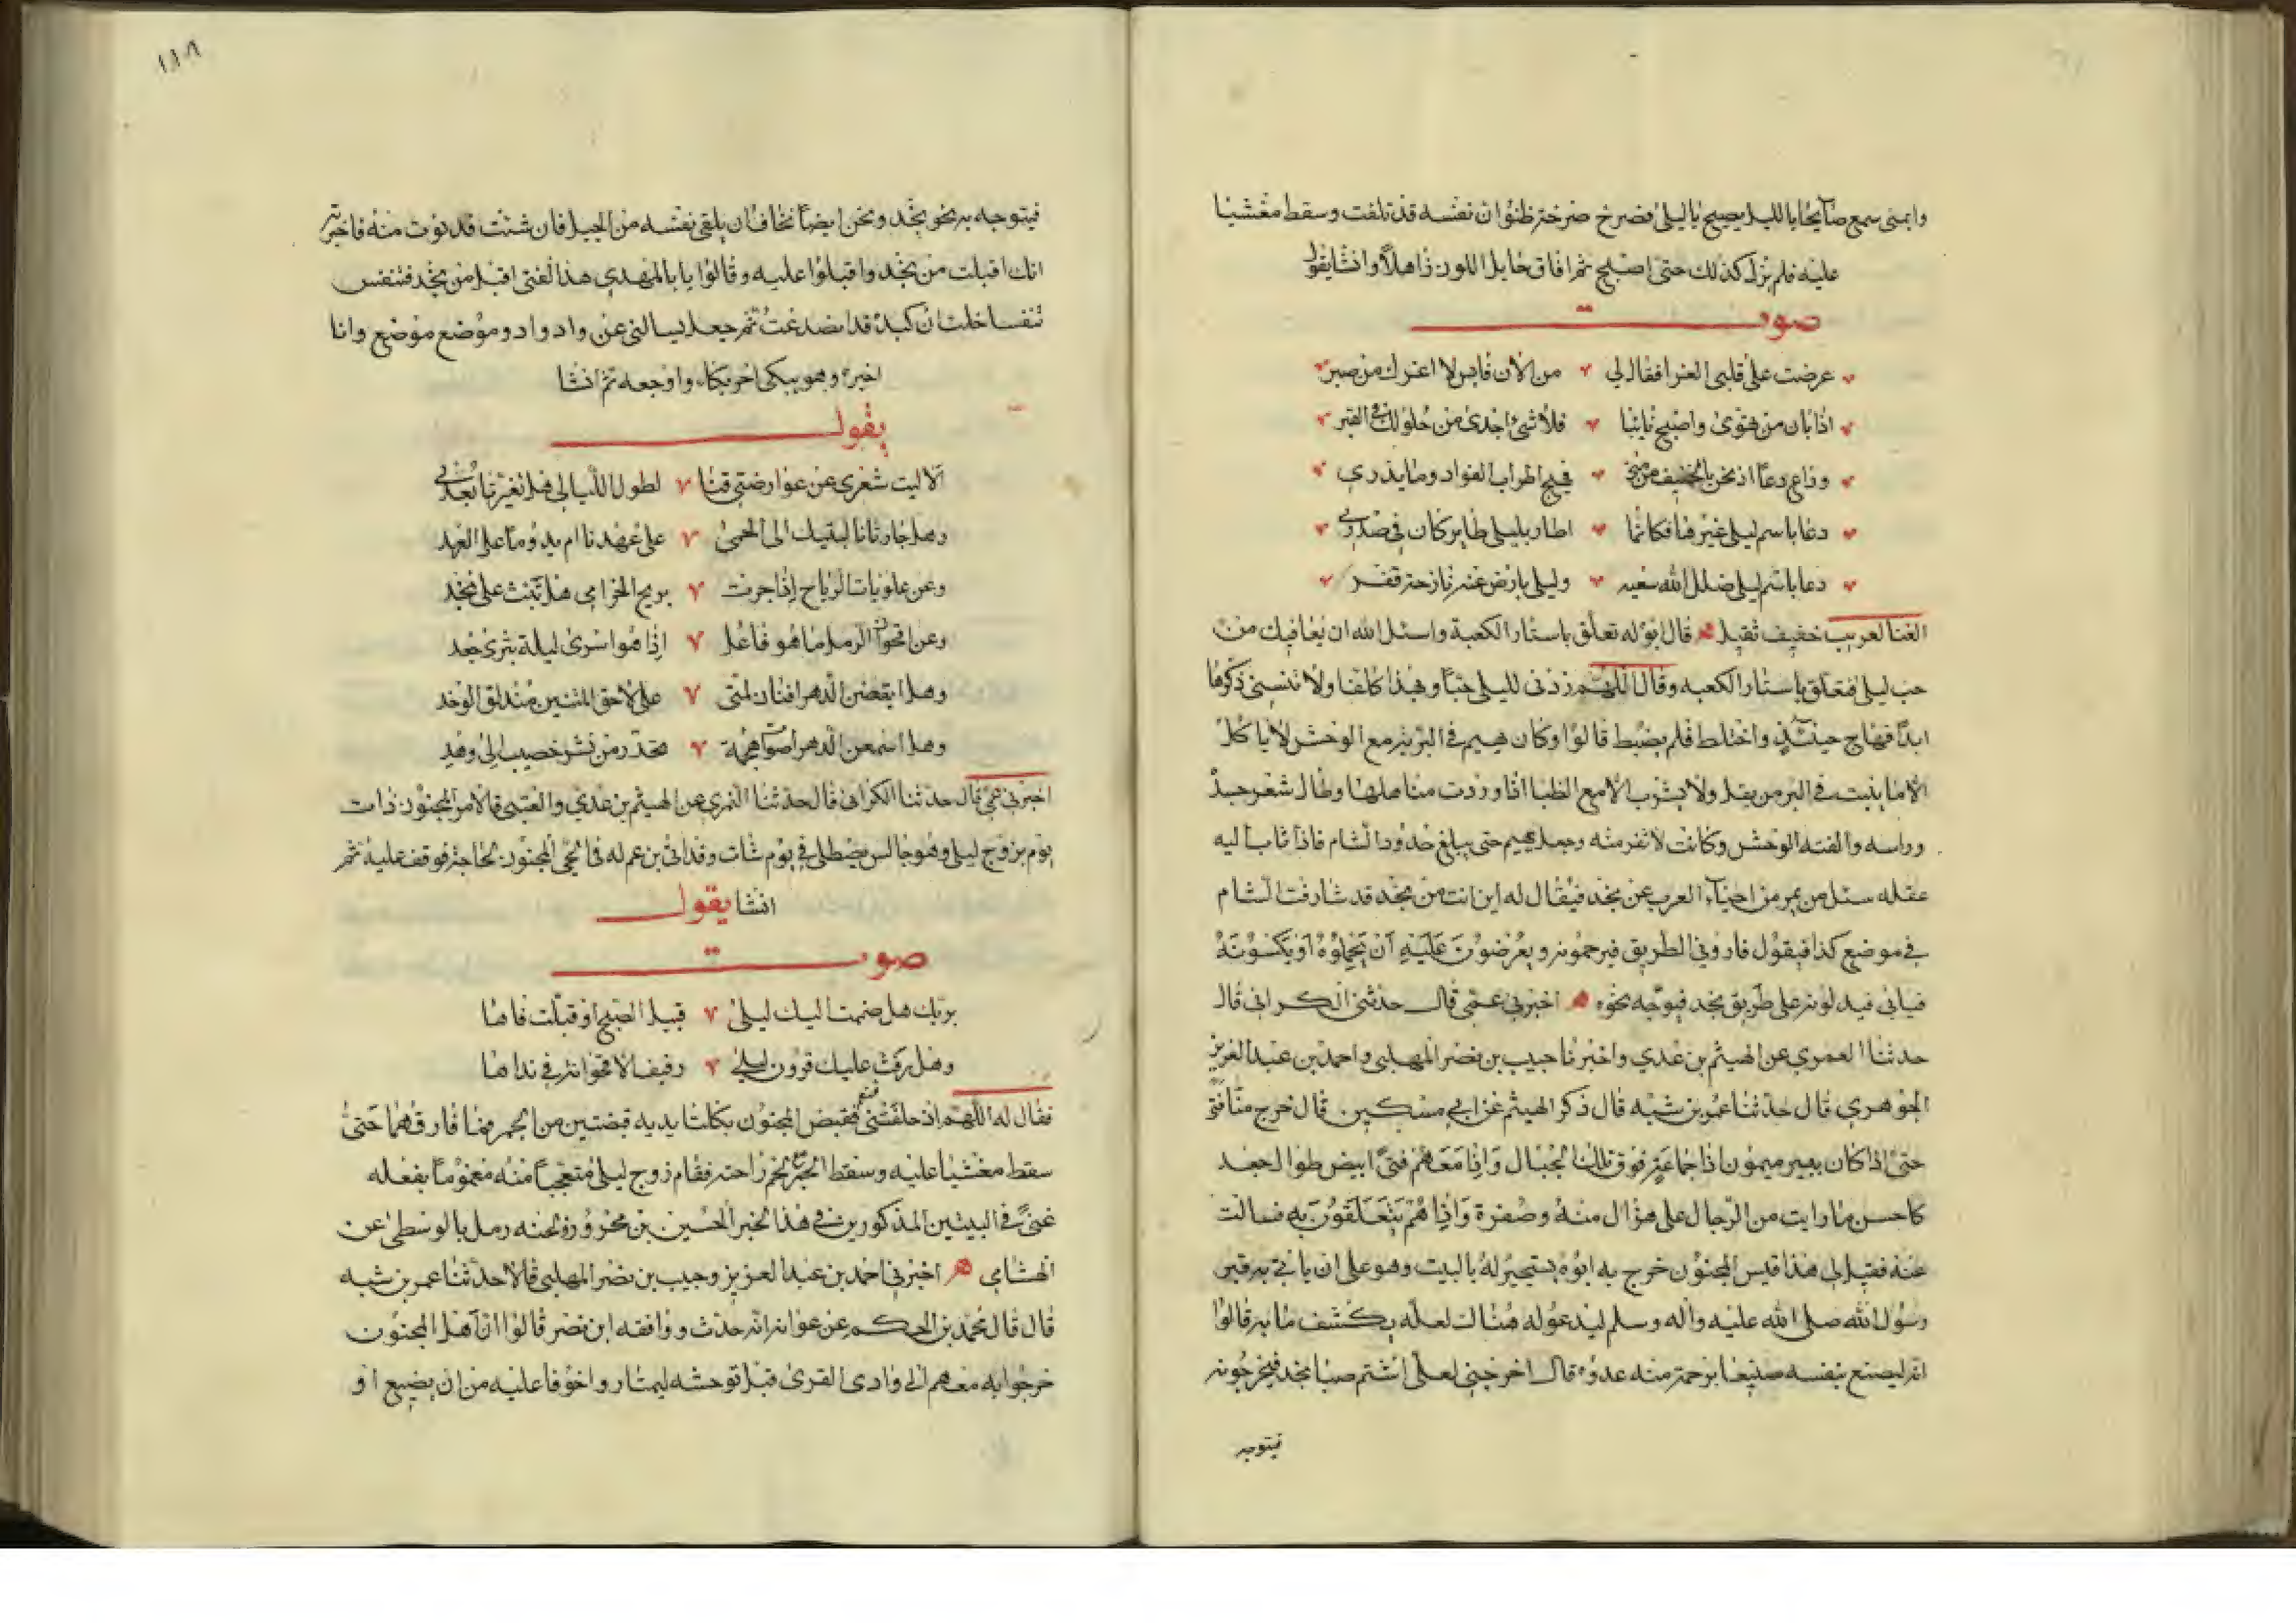 وابمنى سمع صائحا بالليل يصيح يا ليلى فصرخ صرخة ظنوا ان نفسه قد تلفت وسقط مغشيا
عليه فلم يزل كذلك حتى اصبح ثم افاق حايل اللون ذاهلا وانشا يقول
صوت
عرضت على قلبى العزا فقال لي من الآن فايس لا اعزك من صبر
اذا بان من تهوى واصبح نايئا فلا شئ اجدى من حلولك في القبر
وداع دعا اذ نحن بالخيف من منى فهيج اطراب الفواد وما يدري
دعا باسم ليلى غيرها فكانما اطار بليلى طاير كان في صدرى
دعا باسم ليلى ضلل الله سعيه وليلى بارض عنه نازحة قفر
الغنا لعريب خفيف ثقيل قال ابوه له تعلق باستار الكعبة واسئل الله ان يعافيك من
حب ليلى فتعلق باستار الكعبه وقال اللهم زدنى لليلى حبا وبهذا كلفا ولا تنسنى ذكرها
ابدا فهاج حينئذ واختلط فلم يضبط قالوا وكان يهيم في البرية مع الوحش لا ياكل
الا ما ينبت في البر من بقل ولا يشرب الا مع الظبا اذا وردت مناهلها وطال شعر جسد
وراسه والفته الوحش وكانت لا تنفر منه وجعل يهيم حتى يبلغ حدود الشام فاذا ثاب اليه
عقله سئل من يمر من احياء العرب عن نجد فيقال له اين انت من نجد قد شارفت الشام
في موضع كذا فيقول فاروني الطريق فيرحمونه ويعرضون عليه ان يحملوه او يكسوته
فيابى فيدلونه على طريق نجد فيوجه نحوه اخبرني عمي قال حدثنى الكرانى قال
حدثنا العمري عن الهيثم بن عدي واخبرنا حبيب بن نصر المهلبى واحمد بن عبد العزيز
الجوهري قال حدثنا عمر بن شبه قال ذكر الهيثم عن ابي مسكين قال خرج منا فتى
حتى اذا كان ببير ميمون اذا جماعة فوق تلك الجبال واذا معهم فتى ابيض طوال جعد
كاحسن ما رايت من الرجال على هزال منه وصفرة واذا هم يتعلقون به فسالت
عنه فقيل لي هذا قيس المجنون خرج به ابوه يستجير له بالبيت وهو على ان ياتي به قبر
رسول الله صلى الله عليه واله وسلم ليدعو له هناك لعله يكشف ما به قالوا
انه ليصنع بنفسه صنيعا يرحمه منه عدوه قال اخرجنى لعلى اشتم صبا نجد فيخرجونه
فيتوجه
١١٨
فيتوجه به نحو نجد ونحن ايضا نخاف ان يلقى نفسه من الجبل فان شئت قد نوت منه فاخبرته
انك اقبلت من نجد واقبلوا عليه وقالوا يا با المهدي هذا الفتى اقبل من نجد فتنفس
تنفسا خلت ان كبده قد انصدعت ثم جعل يسالنى عن واد واد وموضع موضع وانا
اخبره وهو يبكى احر بكاء واوجعه ثم انشا
يقول
الا ليت شعرى عن عوارضتى قنا لطول الليالى هل تغيرتا بعدى
وهل جارتانا لبتيك الى الحمى على عهدنا ام يدوما على العهد
وعن علويات الرياح اذا جرت بريح الخزامى هل تهب على نجد
وعن اقحوان الرمل ما هو فاعل اذا هو اسرى ليلة بثرى جعد
وهل ينقضن الدهر افنان لمتى على لاحق المتنين مندلق الوخد
وهل اسمعن الدهر اصوات هجمة تحدر من نشز خصيب الى وهد
اخبرني عمي قال حدثنا الكرانى قال حدثنا العمري عن الهيثم بن عدي والعتبى قالا مر المجنون ذات
يوم بزوج ليلى وهو جالس يصطلى في يوم شات وقد اتى بن عم له في حي المجنون لحاجة فوقف عليه ثم
انشا يقول
صوت
بربك هل ضممت اليك ليلى قبيل الصبح او قبلت فاها
وهل رفت عليك قرون ليلى رفيف الاقحوانة في نداها
فقال له اللهم اذ حلفتنى فنعم فقبض المجنون بكلتا يديه قبضتين من الجمر فما فارقهما حتى
سقط مغشيا عليه وسقط الجمر مع لحم راحته فقام زوج ليلى متعجبا منه مغموما بفعله
غنى في البيتين المذكورين في هذا الخبر الحسين بن محرز ولحنه رمل بالوسطى عن
الهشامي اخبرني احمد بن عبد العزيز وحبيب بن نصر المهلبى قالا حدثنا عمر بن شبه
قال قال محمد بن الحكم عن عوانه انه حدث ووافقه ابن نصر قالوا ان اهل المجنون
خرجوا به معهم الى وادى القرى قبل توحشه ليمتاروا خوفا عليه من ان يضيع او